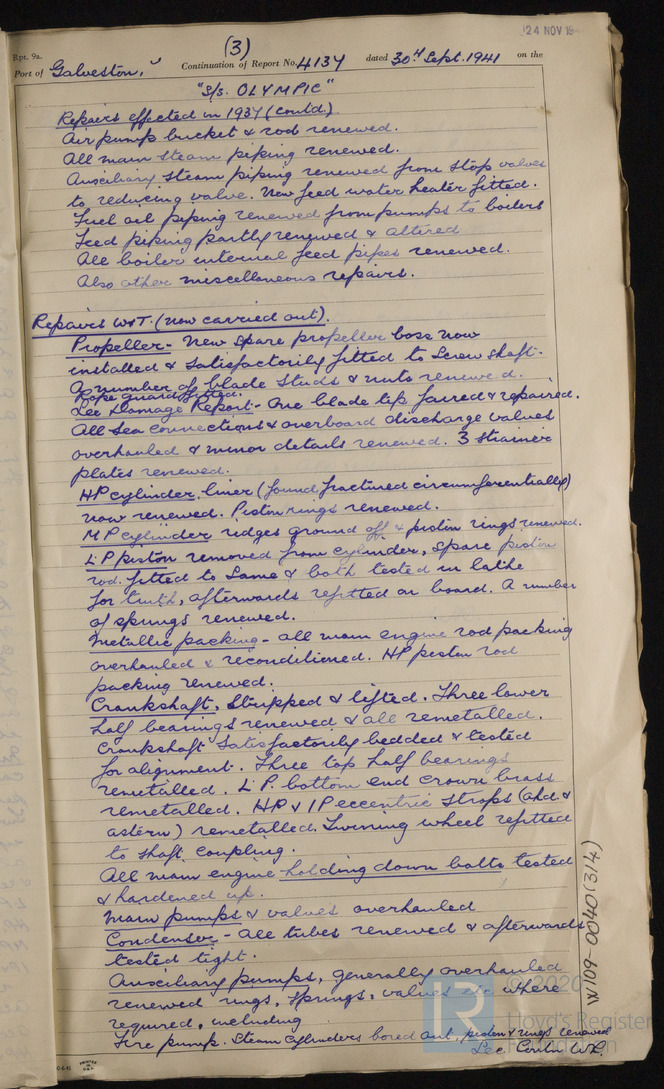 (3)
24 NOV 19
Rpt. 9a.
Port of Galveston, Continuation of Report No. 4137 dated 30th Sept. 1941 on the
"S/S. OLYMPIC"
Repairs effected in 1937 (contd.)
Air pump bucket & rod renewed.
All main steam piping renewed.
Auxiliary steam piping renewed from stop valves
to reducing valve. New feed water heater fitted.
Fuel oil piping renewed from pumps to boilers
Feed piping partly renewed & altered
All boiler internal feed pipes renewed.
Also other miscellaneous repairs.
Repairs W&T. (now carried out).
Propeller - New spare propeller boss now
installed & satisfactorily fitted to screw shaft.
A number of blade studs & nuts renewed.
Rope guard fitted.
See Damage Report - One blade tip faired & repaired.
All sea connections & overboard discharge valves
overhauled & minor details renewed. 3 strainer
plates renewed.
HP cylinder liner (found fractured circumferentially)
now renewed. Piston rings renewed.
MP cylinder ridges ground off & piston rings renewed.
LP piston removed from cylinder, spare piston
rod fitted to same & both tested in lathe
for truth, afterwards refitted on board. A number
of springs renewed.
Metallic packing - all main engine rod packing
overhauled & reconditioned. HP piston rod
packing renewed.
Crankshaft. Stripped & lifted. Three lower
half bearings renewed & all remetalled.
Crankshaft satisfactorily bedded & tested
for alignment. Three top half bearings
remetalled. L.P. bottom end crown brass
remetalled. HP & IP eccentric straps (ahd. &
astern) remetalled. Turning wheel refitted
to shaft coupling.
All main engine holding down bolts tested
& hardened up.
Main pumps & valves overhauled
Condenser - All tubes renewed & afterwards
tested tight.
Auxiliary pumps, generally overhauled
renewed rings, springs, valves etc where
required, including
Fire pump. Steam cylinders bored out, piston & rings renewed
W109-0040(3/4)
© 2020
Lloyd's Register
Foundation